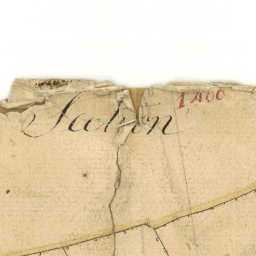 Section
1400